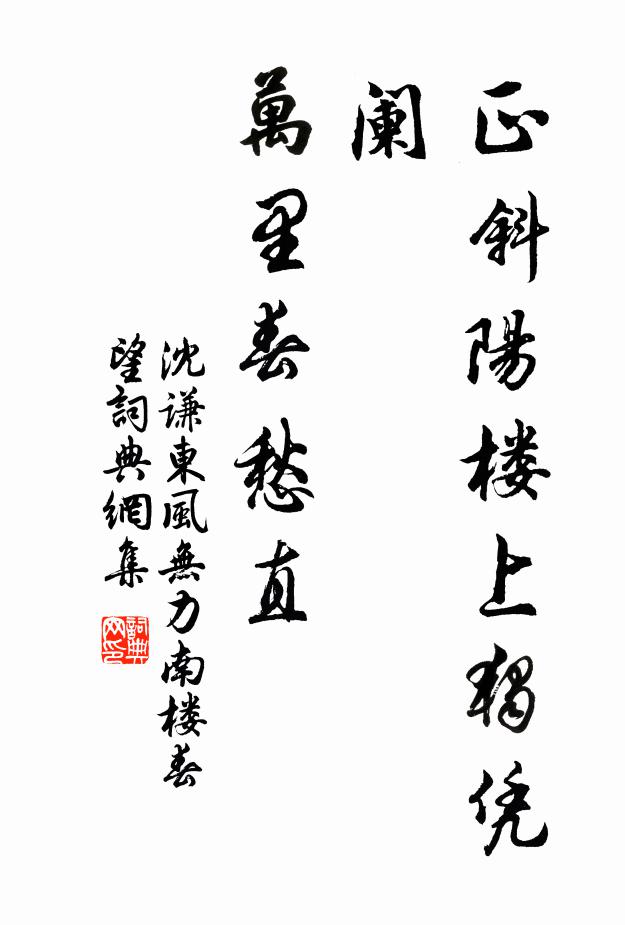 正斜陽楼上獨凭
阑
萬里春愁直
沈谦東風無力南楼春
望詞典網集
詞典
网印